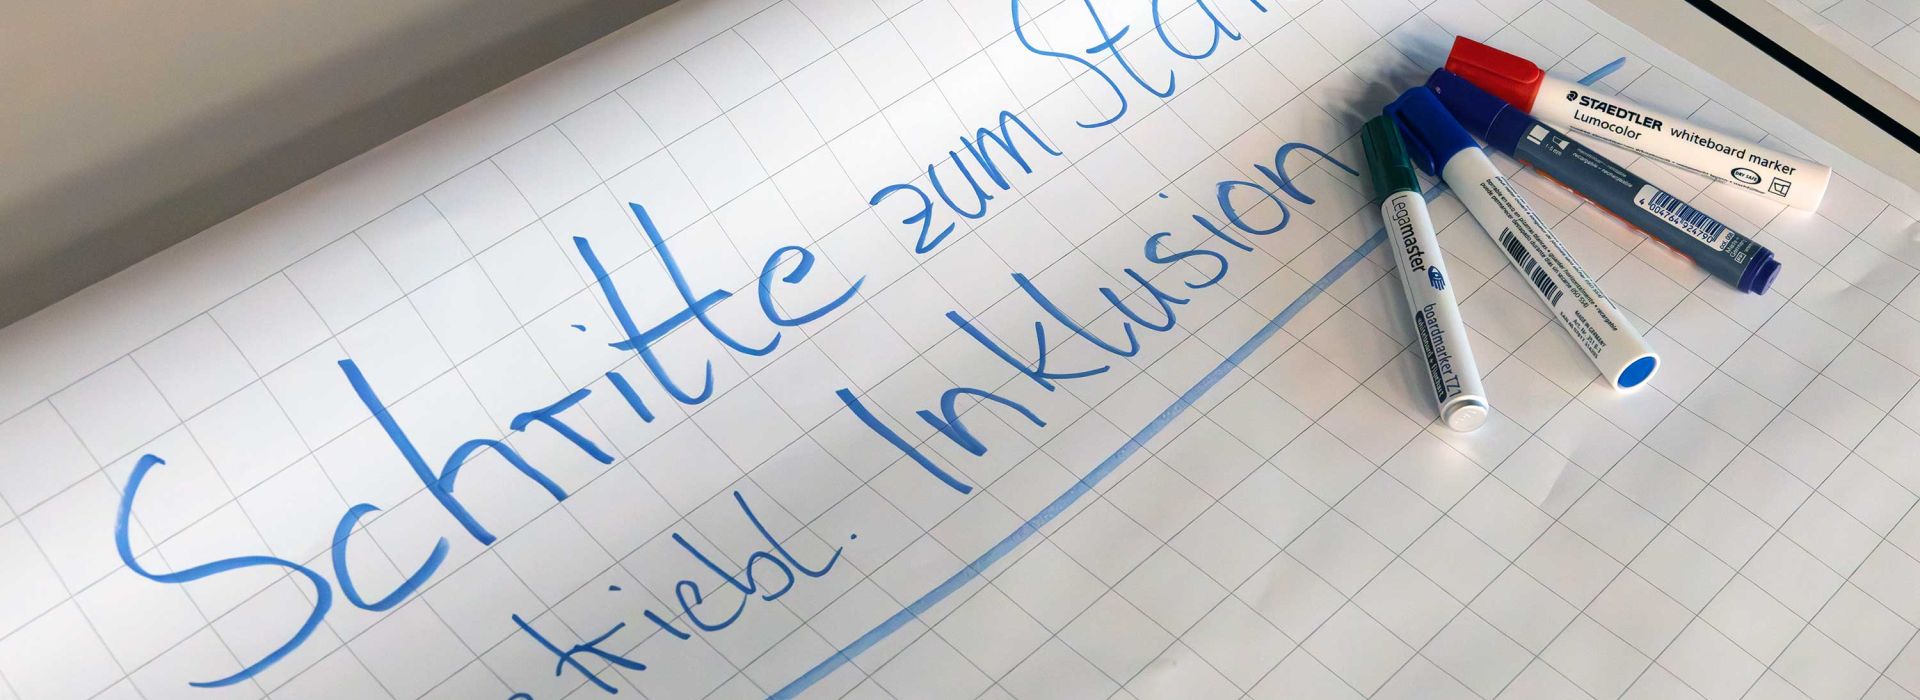 Schritte zum Sta
triebl. Inklusion
STAEDTLER
Lumocolor whiteboard marker
DRY SAFE
4 004764 924790
Legamaster boardmarker TZ1
MADE IN GERMANY